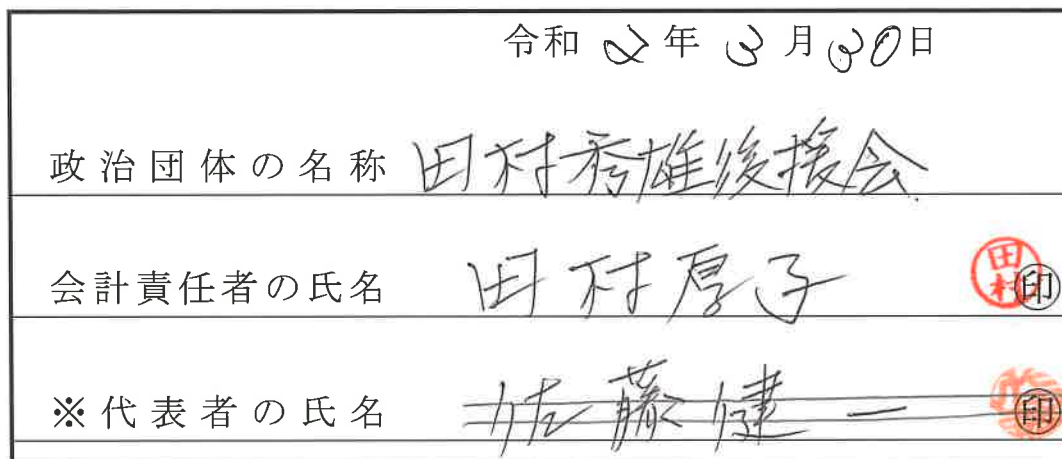 令和2年3月30日
政治団体の名称 田村秀雄後援会
会計責任者の氏名 田村厚子 田村 印
※代表者の氏名 佐藤健一 印